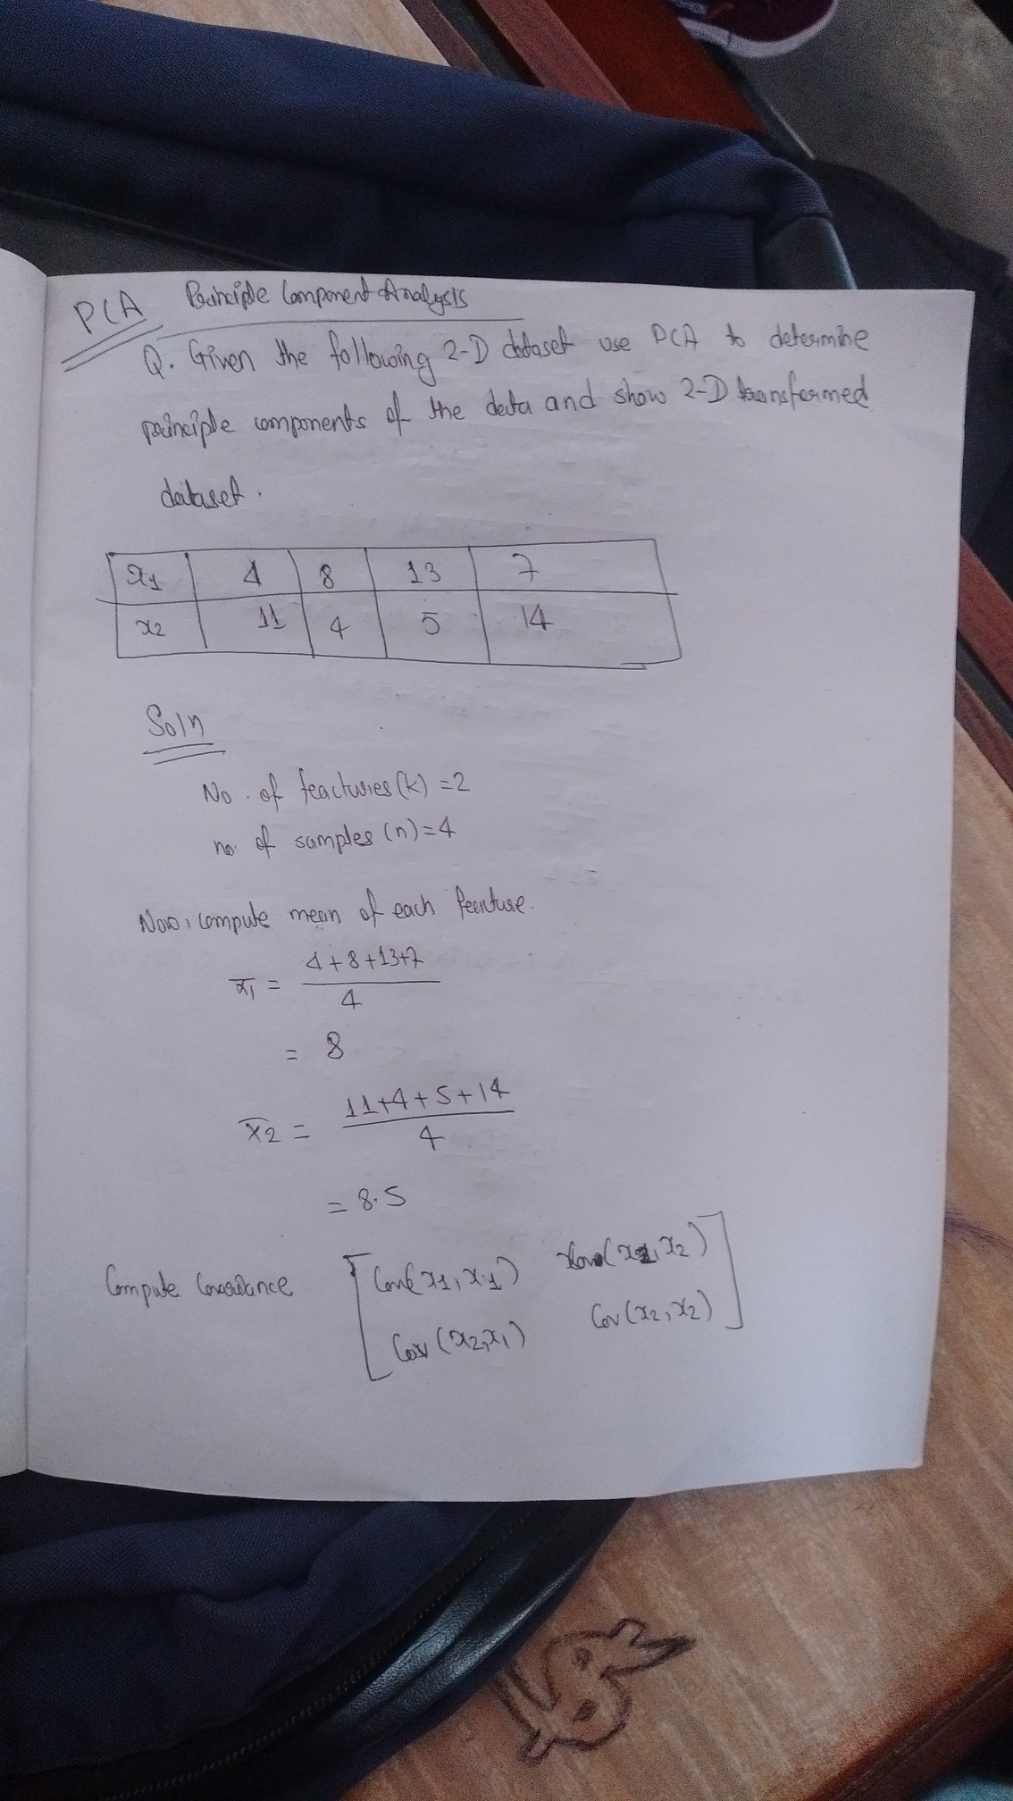 PCA Principle Component Analysis
Q. Given the following 2-D dataset use PCA to determine
principle components of the data and show 2-D transformed
dataset.
x1 4 8 13 7
x2 11 4 5 14
Soln
No. of feactures (k) = 2
no. of samples (n) = 4
Now, compute mean of each feature.
x̄1 = 4+8+13+7 / 4
= 8
x̄2 = 11+4+5+14 / 4
= 8.5
Compute Covariance [ Cov(x1, x1) Cov(x1, x2)
Cov(x2, x1) Cov(x2, x2) ]